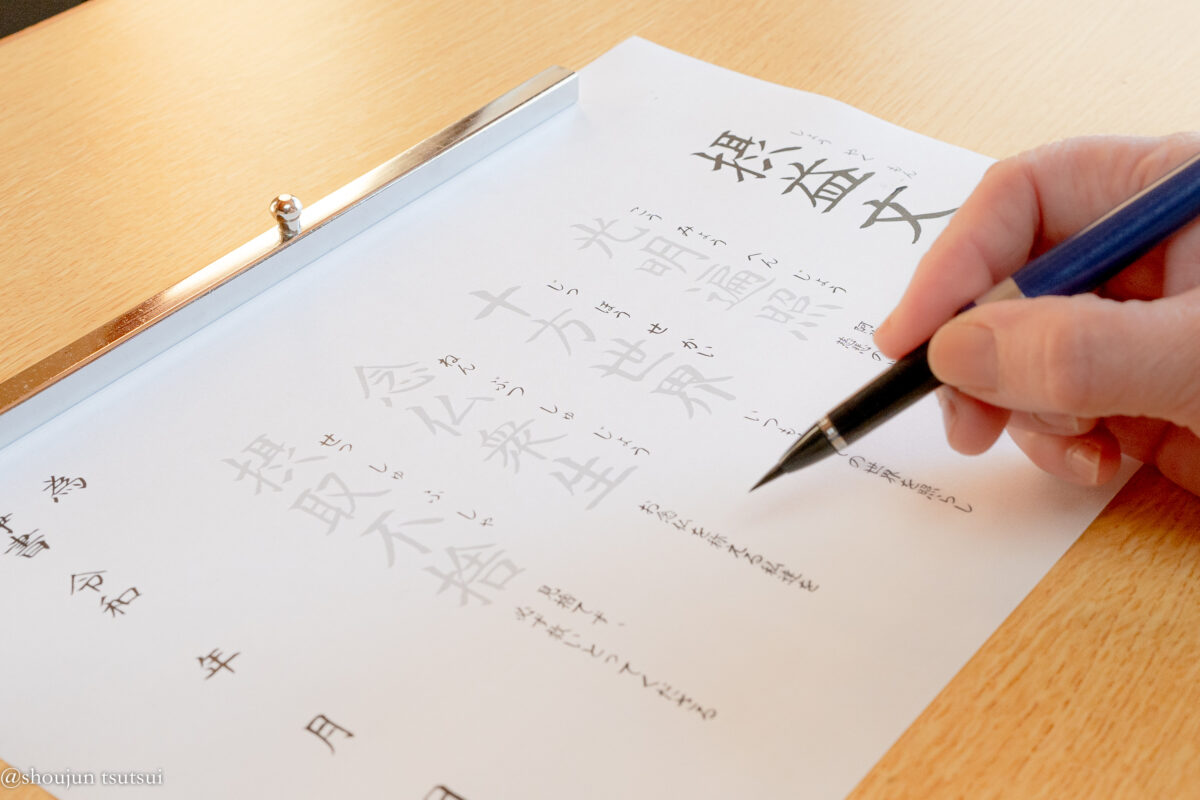 しょうやくもん
摂益文
こうみょうへんじょう
光明遍照
阿
慈悲の
じっぽうせかい
十方世界
いつも
の世界を照らし
ねんぶつしゅじょう
念仏衆生
お念仏を称える私達を
せっしゅふしゃ
摂取不捨
見捨てず、
必ず救いとってくださる
令和 年 月 日
為
書
@shoujun tsutsui